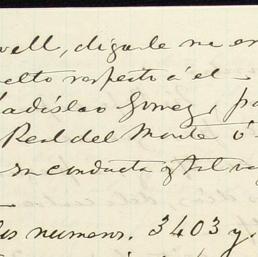 well, digasele me en
elto respecto á el
Ladislao Gomez, pa
Real del Monte ó
su conducta y tal va
los numeros. 3403 y